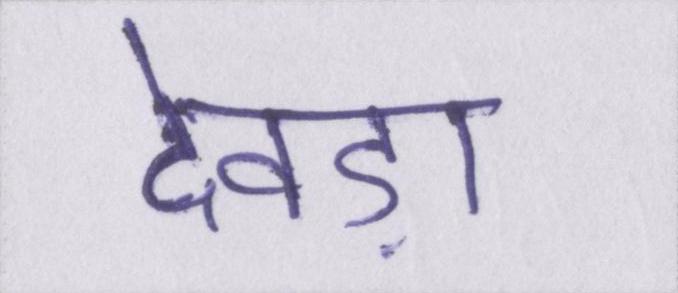 देवड़ा